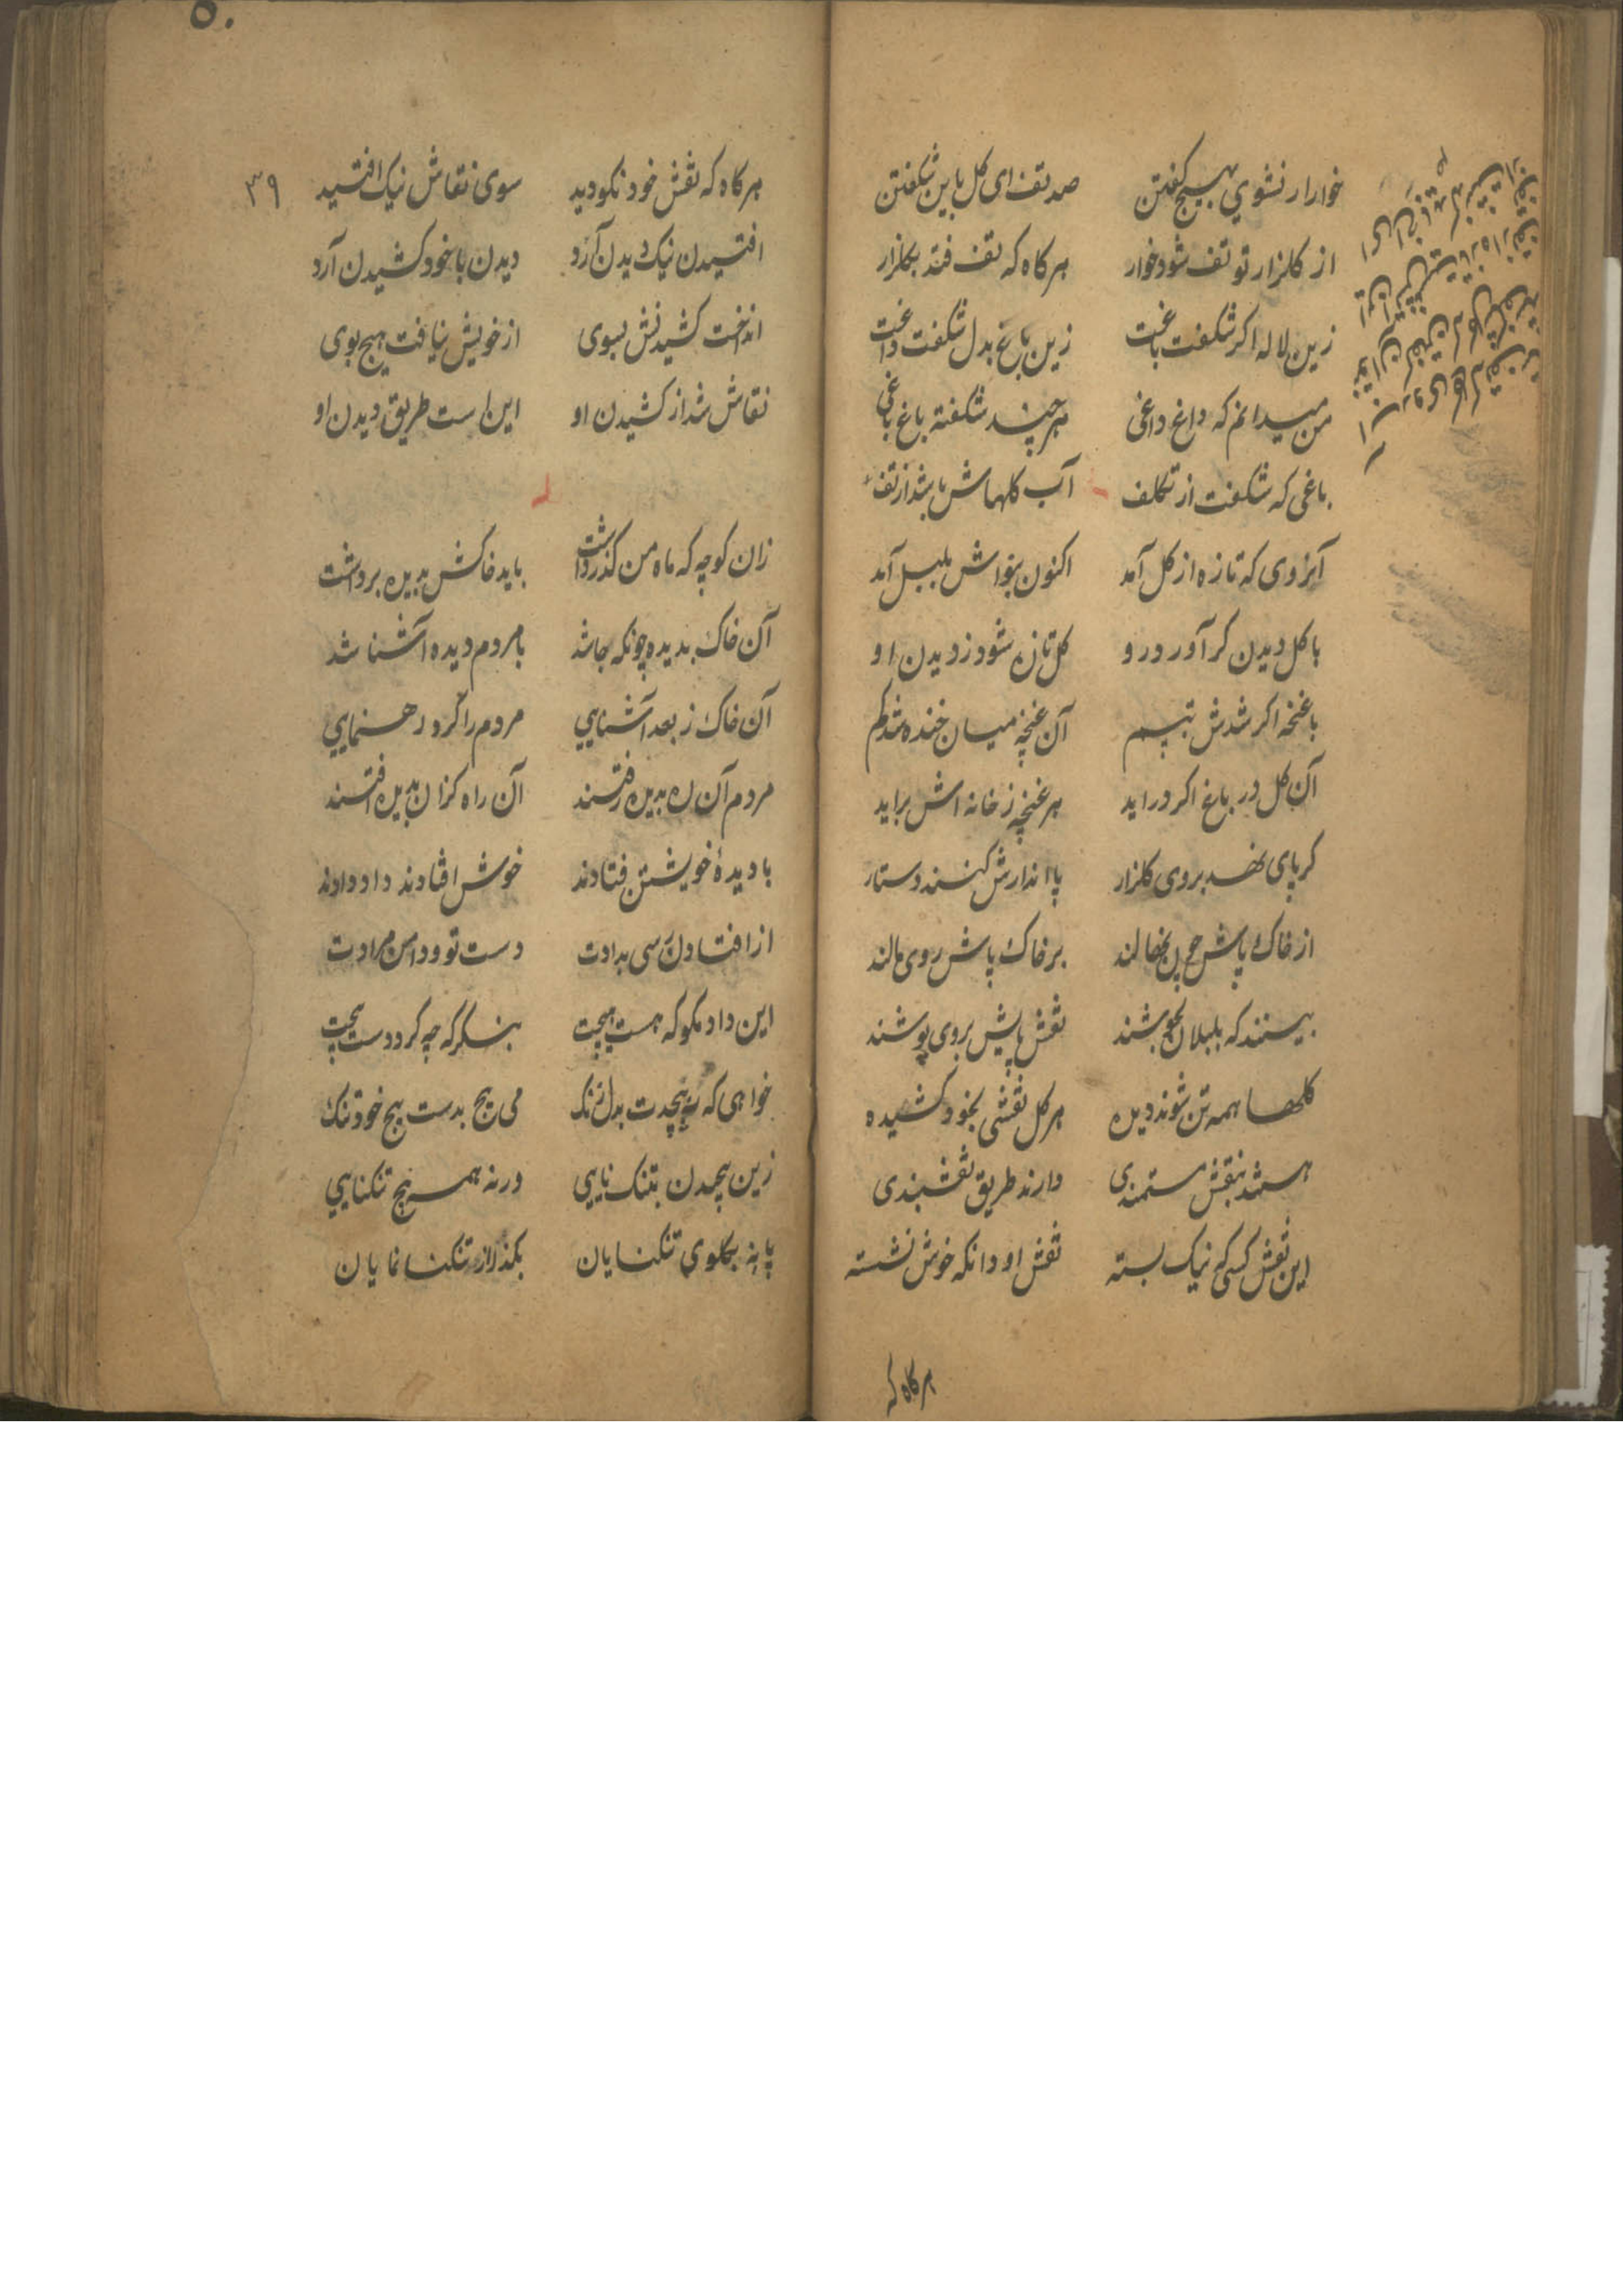 خوارار نشوي بهیچ کفتن صد تف ای کل باین شکفتن
از کلزار تو تف شود خوار هر کاه که تف فتد بکلزار
زین لاله اکر شکفت باغت زین باغ بدل شکفت داغت
من میدانم که داغ داغی هر چند شکفته باغ باغی
باغی که شکفت از تکلف آب کلهاش باشد از تف
آنروی که تازه از کل آمد اکنون بنواش بلبل آمد
با کل دیدن کر آورد رو کل تازه شود ز دیدن او
با غنچه اکر شدش تبسم آن غنچه میان خنده شد کم
آن کل در باغ اکر دراید هر غنچه ز خانه اش براید
کر پای نهد بروی کلزار پا اندازش کنند دستار
از خاک پاش چون بخالند بر خاک پاش روی مالند
بیستند که بلبلان بجوشند نقش پایش بروی پوشند
کلها همه تن شوند دیده هر کل نقشی بخود کشیده
هستند بنقش مستمندی دارند طریق نقشبندی
این نقش کسی که نیک بسته نقش او دانکه خوش نشسته
هر کاه که
۵۰
۳۹
هر کاه که نقش خود نکو دید سوی نقاش نیک افتید
افتیدن نیک دیدن آرد دیدن با خود کشیدن آرد
انداخت کشیدنش بسوی از خویش نیافت هیچ بوی
نقاش شد از کشیدن او این است طریق دیدن او
زان کوچه که ماه من کذر داشت باید خاکش بدیده برداشت
آن خاک بدیده چونکه جا شد با مردم دیده آشنا شد
آن خاک ز بعد آشنایي مردم را کرد رهنمایي
مردم آن ره بدیده رفتند آن راه کزان بدیده افتند
با دیدهٔ خویشتن فتادند خوش افتادند داد دادند
از افتادن رسی بدادت دست تو و دامن مرادت
این داد مکو که هست هیچت بنکر که چه کرد دست پیچت
خواهی که نپیچدت بدل تنک می پیچ بدست هیچ خود تنک
زین پیچیدن بتنک نایی ورنه همه پیچ تنکنایي
پا نه بکلوي تنکنایان بکذر از تنکنا نمایان